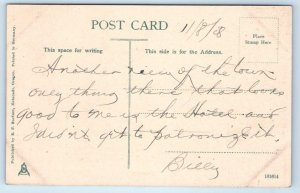 POST CARD
11/8/08
Place
Stamp Here
This space for writing
This side is for the Address.
Another view of the town
only thing there that looks
good to me is the Hotel and
I didn't get to patronize it.
Billy
Printed in Germany.
Published by
103054